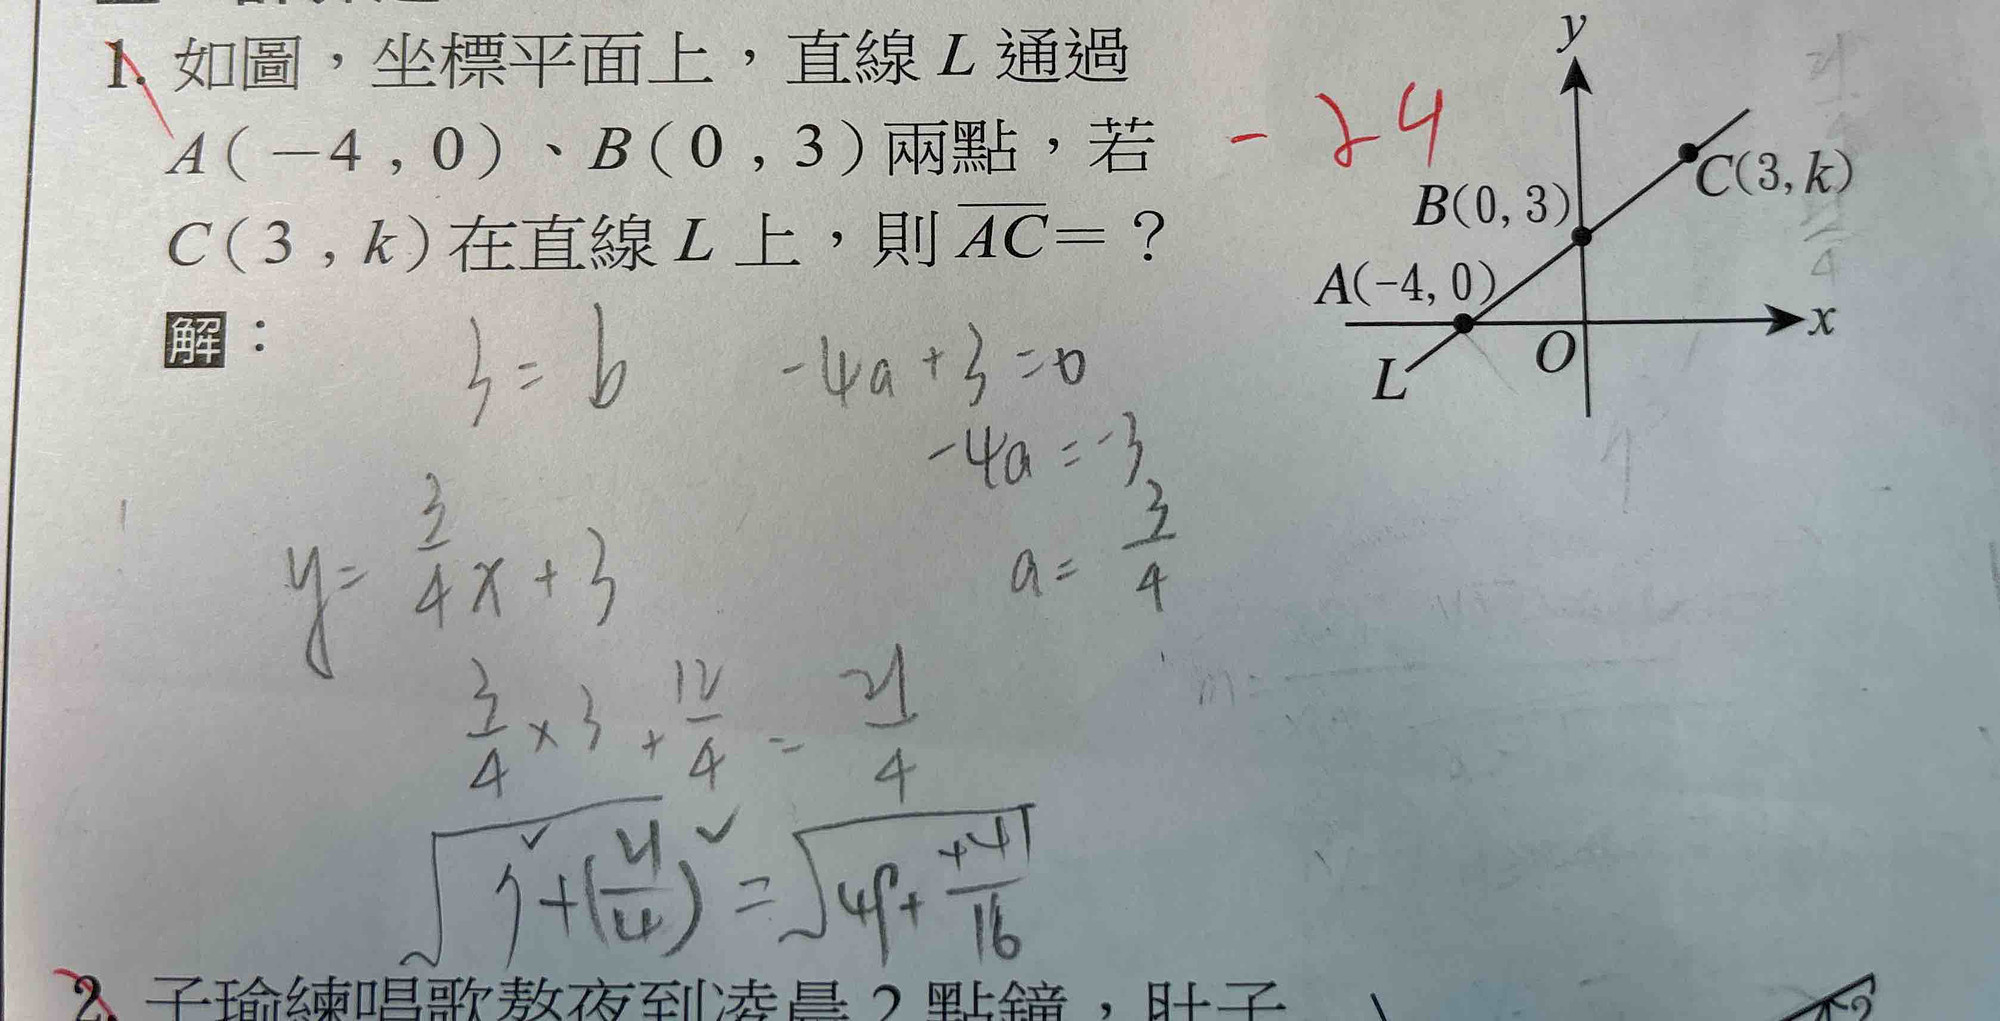 1. 如圖，坐標平面上，直線 L 通過
A(－4 , 0)、B(0 , 3)兩點，若
C(3 , k)在直線 L 上，則 AC＝？
-24
y
C(3, k)
B(0, 3)
A(-4, 0)
x
O
L
解：
3 = b　-4a + 3 = 0
-4a = -3
a = 3/4
y = 3/4 x + 3
3/4 × 3 + 12/4 = 21/4
√(7² + (21/4)²) = √(49 + 441/16)
2. 子瑜練唱歌熬夜到凌晨 2 點鐘，肚子